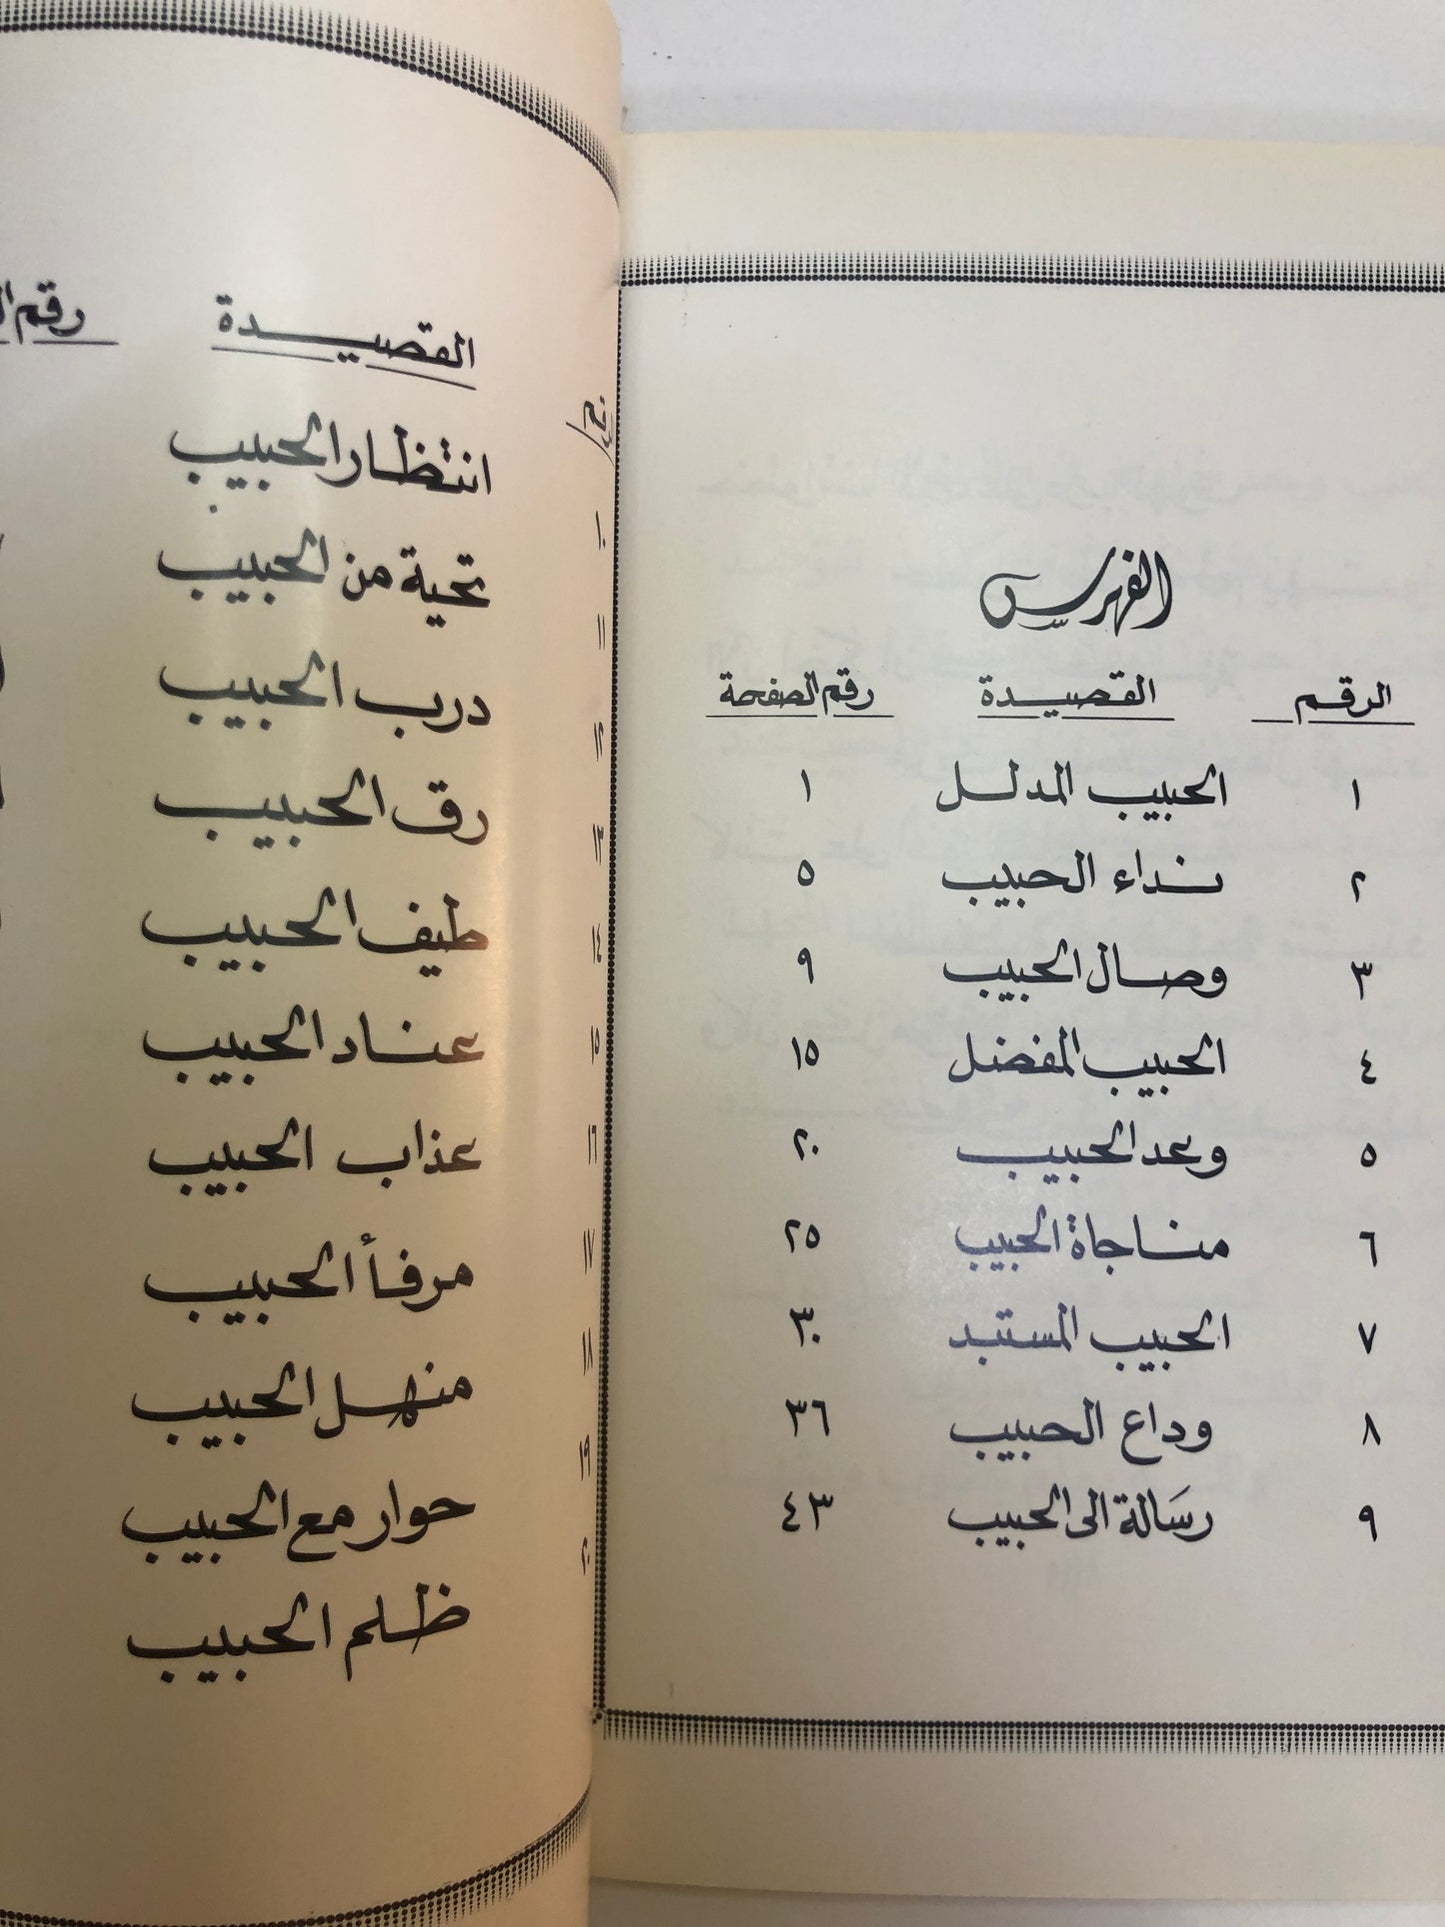 الفهرس
الرقم القصيدة رقم الصفحة
١ الحبيب المدلل ١
٢ نداء الحبيب ٥
٣ وصال الحبيب ٩
٤ الحبيب المفضل ١٥
٥ وعد الحبيب ٢٠
٦ مناجاة الحبيب ٢٥
٧ الحبيب المستبد ٣٠
٨ وداع الحبيب ٣٦
٩ رسالة الى الحبيب ٤٣
القصيدة رقم
١٠ انتظار الحبيب
١١ تحية من الحبيب
١٢ درب الحبيب
١٣ رق الحبيب
١٤ طيف الحبيب
١٥ عناد الحبيب
١٦ عذاب الحبيب
١٧ مرفأ الحبيب
١٨ منهل الحبيب
١٩ حوار مع الحبيب
٢٠ ظلم الحبيب